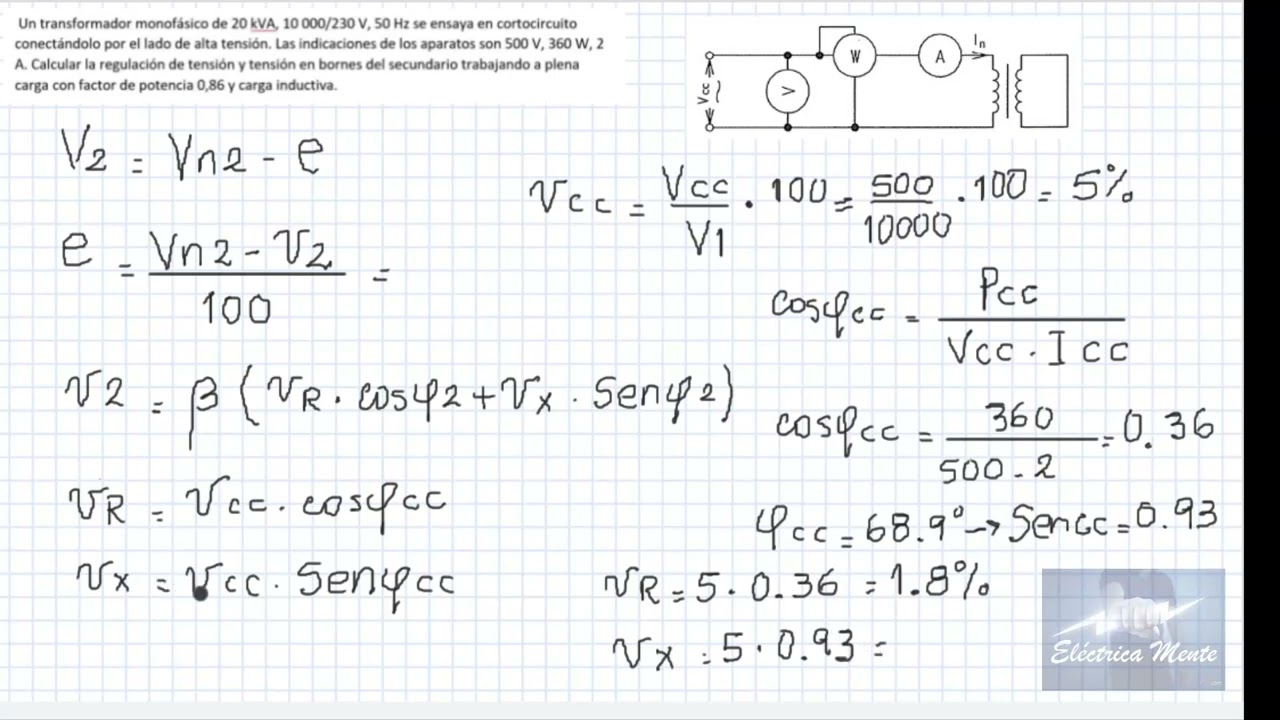 Un transformador monofásico de 20 kVA, 10 000/230 V, 50 Hz se ensaya en cortocircuito
conectándolo por el lado de alta tensión. Las indicaciones de los aparatos son 500 V, 360 W, 2
A. Calcular la regulación de tensión y tensión en bornes del secundario trabajando a plena
carga con factor de potencia 0,86 y carga inductiva.
W
A
In
V
Vcc
V2 = Vn2 - e
Vcc = Vcc / V1 . 100 = 500 / 10000 . 100 = 5%
e = Vn2 - V2 / 100 =
cosφcc = Pcc / Vcc . Icc
V2 = β (VR . cosφ2 + Vx . Senφ2)
cosφcc = 360 / 500 . 2 = 0.36
VR = Vcc . cosφcc
φcc = 68.9° → Sencc = 0.93
Vx = Vcc . Senφcc
VR = 5 . 0.36 = 1.8%
Vx = 5 . 0.93 =
Eléctrica Mente